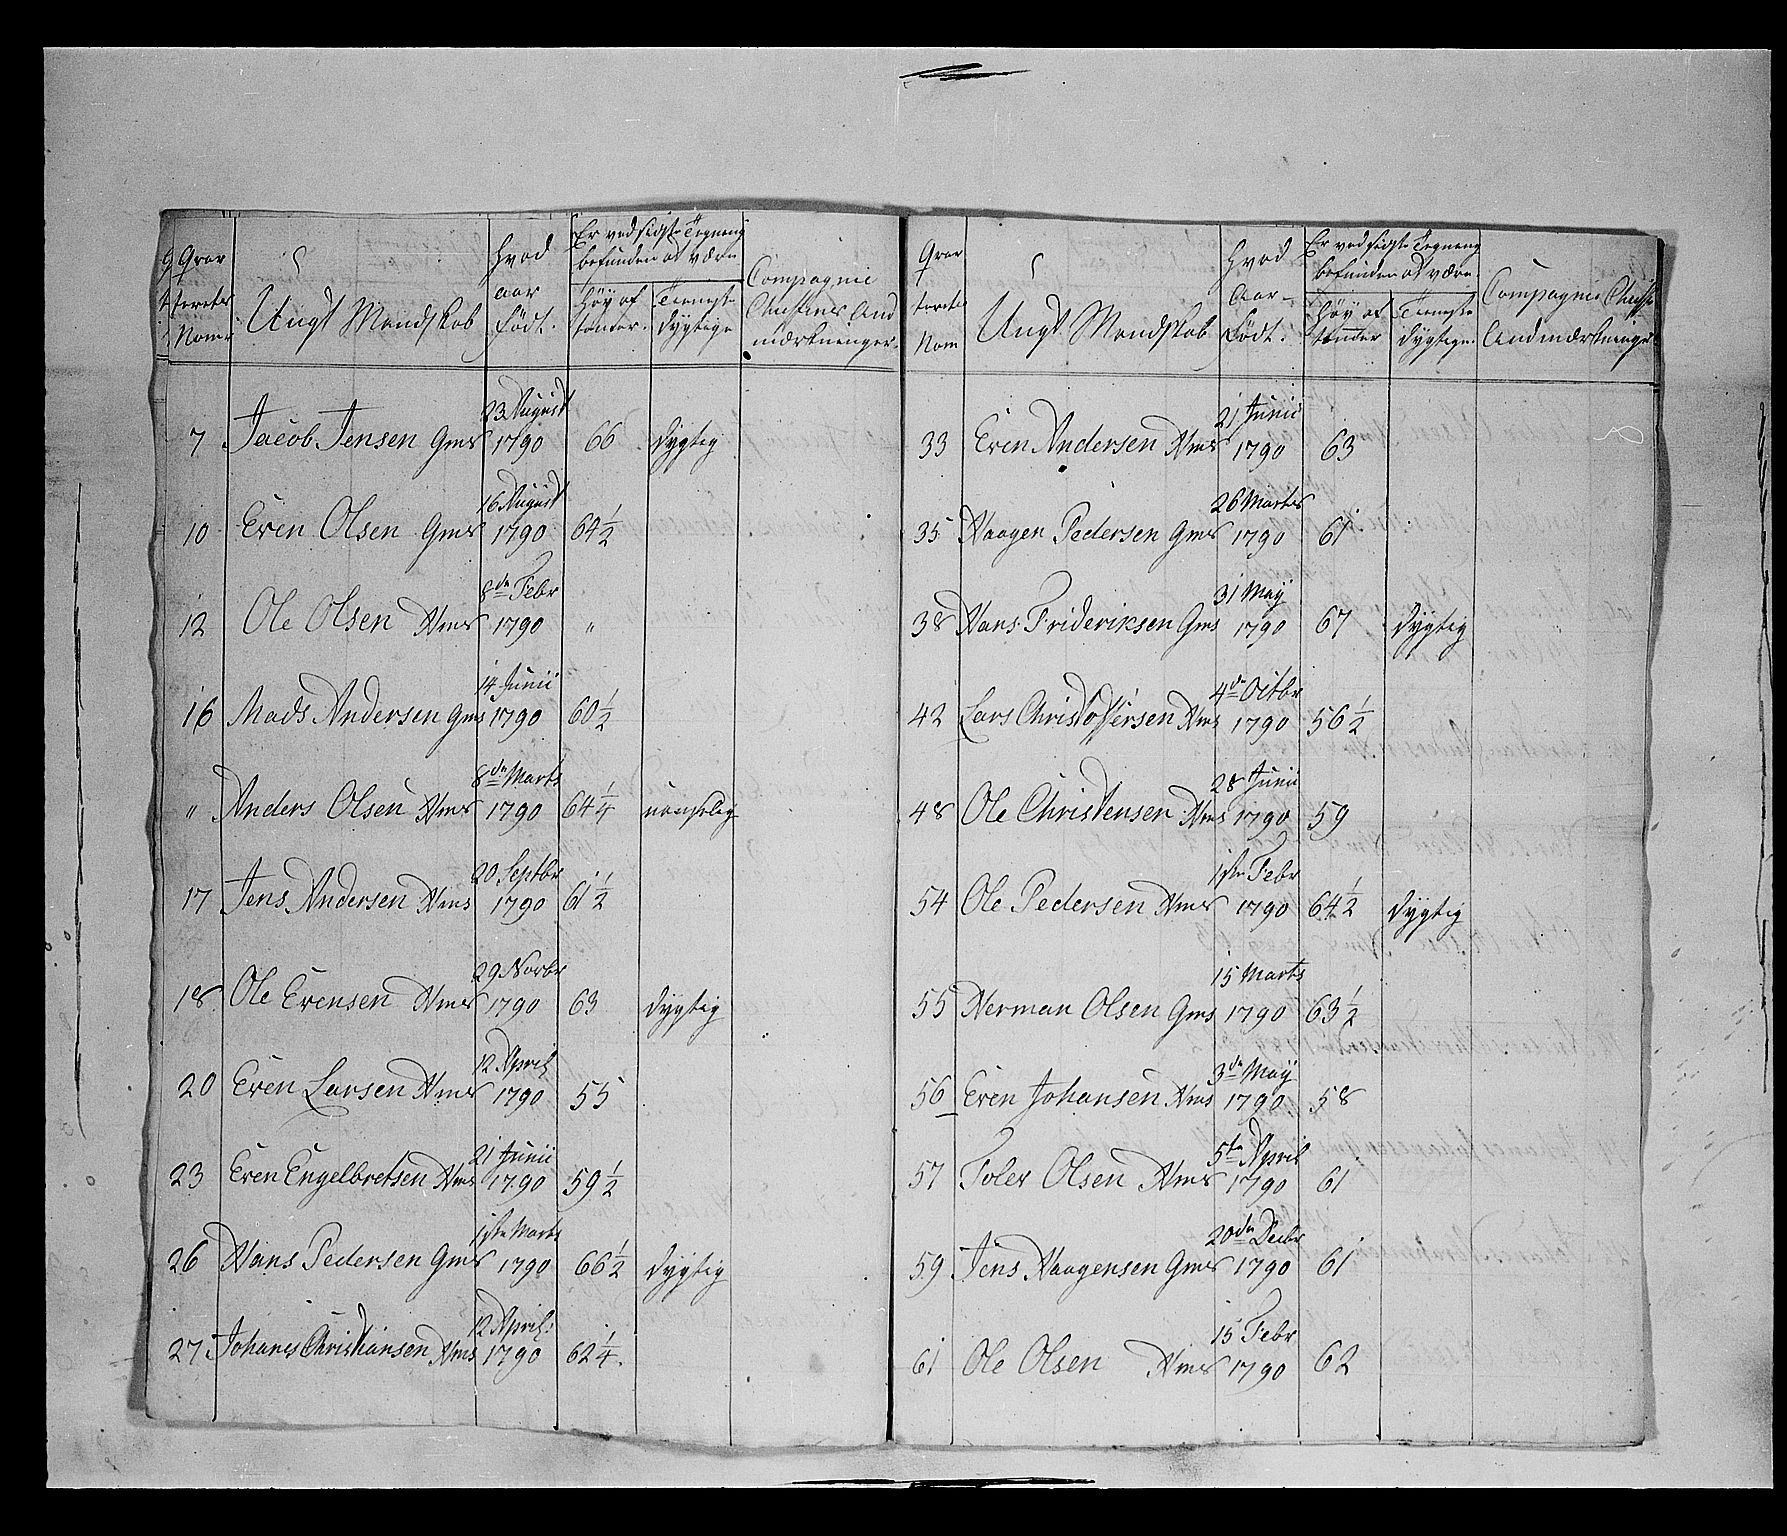 Qvar
terets
Nom
Ungt Mandskab
Hvad
aar
Født.
Er ved sidste Tegning
befunden at være
Høy af
tommer.
Tieneste
dygtige
Compagnie
Chefens And
mærkninger.
7 Jacob Jensen Gms 23 August 1790 66 dygtig
10 Even Olsen Gms 16 August 1790 64 1/2
12 Ole Olsen Hms 8de Febr 1790 "
16 Mads Andersen Gms 14 Junii 1790 60 1/2
" Anders Olsen Hms 8de Marts 1790 64 1/4
17 Jens Andersen Hms 20 Septbr 1790 61 1/2
18 Ole Evensen Hms 29 Novbr 1790 63 dygtig
20 Even Larsen Hms 12 April 1790 55
23 Even Engelbretsen Hms 21 Junii 1790 59 1/2
26 Hans Pedersen Gms 1ste Marts 1790 66 1/2 dygtig
27 Johanes Christiansen Hms 12 April: 1790 62 1/4.
Qvar
terets
Nom
Ungt Mandskab
Hvad
Aar
Født.
Er ved sidste Tegning
befunden at være
Høy af
tommer
Tieneste
dygtige.
Compagnie Chefens
Andmærkninger
33 Even Andersen Hms 21 Junii 1790 63
35 Haagen Pedersen Gms 26 Marts 1790 61
38 Hans Frideriksen Gms 31 May 1790 67 dygtig
42 Lars Christoffersen Hms 4de Octbr 1790 56 1/2
48 Ole Christensen Hms 28 Junii 1790 59
54 Ole Pedersen Hms 1ste Febr 1790 64 1/2 dygtig
55 Herman Olsen Gms 15 Marts 1790 63 1/2
56 Even Johansen Hms 3de May 1790 58
57 Tolev Olsen Hms 5te April 1790 61
59 Jens Haagensen Gms 20de Decbr 1790 61
61 Ole Olsen Hms 15 Febr 1790 62